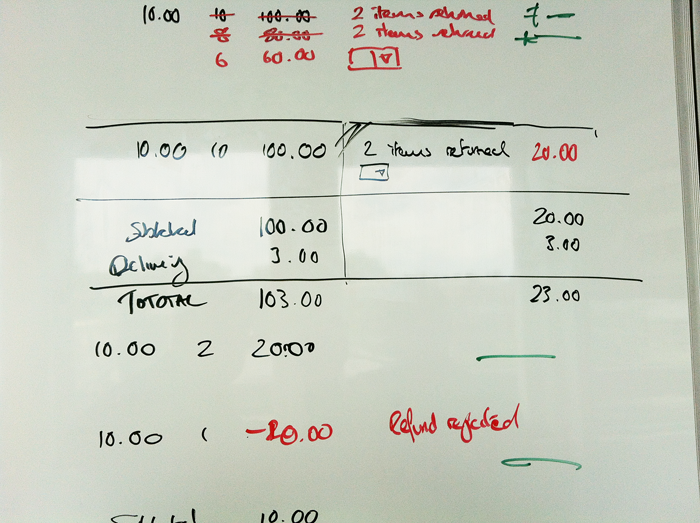 10.00 10 100.00 2 items returned
8 80.00 2 items returned
6 60.00
10.00 10 100.00 2 items returned 20.00
Subtotal 100.00 20.00
Delivery 3.00 3.00
TOTOTAL 103.00 23.00
10.00 2 20.00
10.00 1 -10.00 Refund rejected
Subtotal 10.00